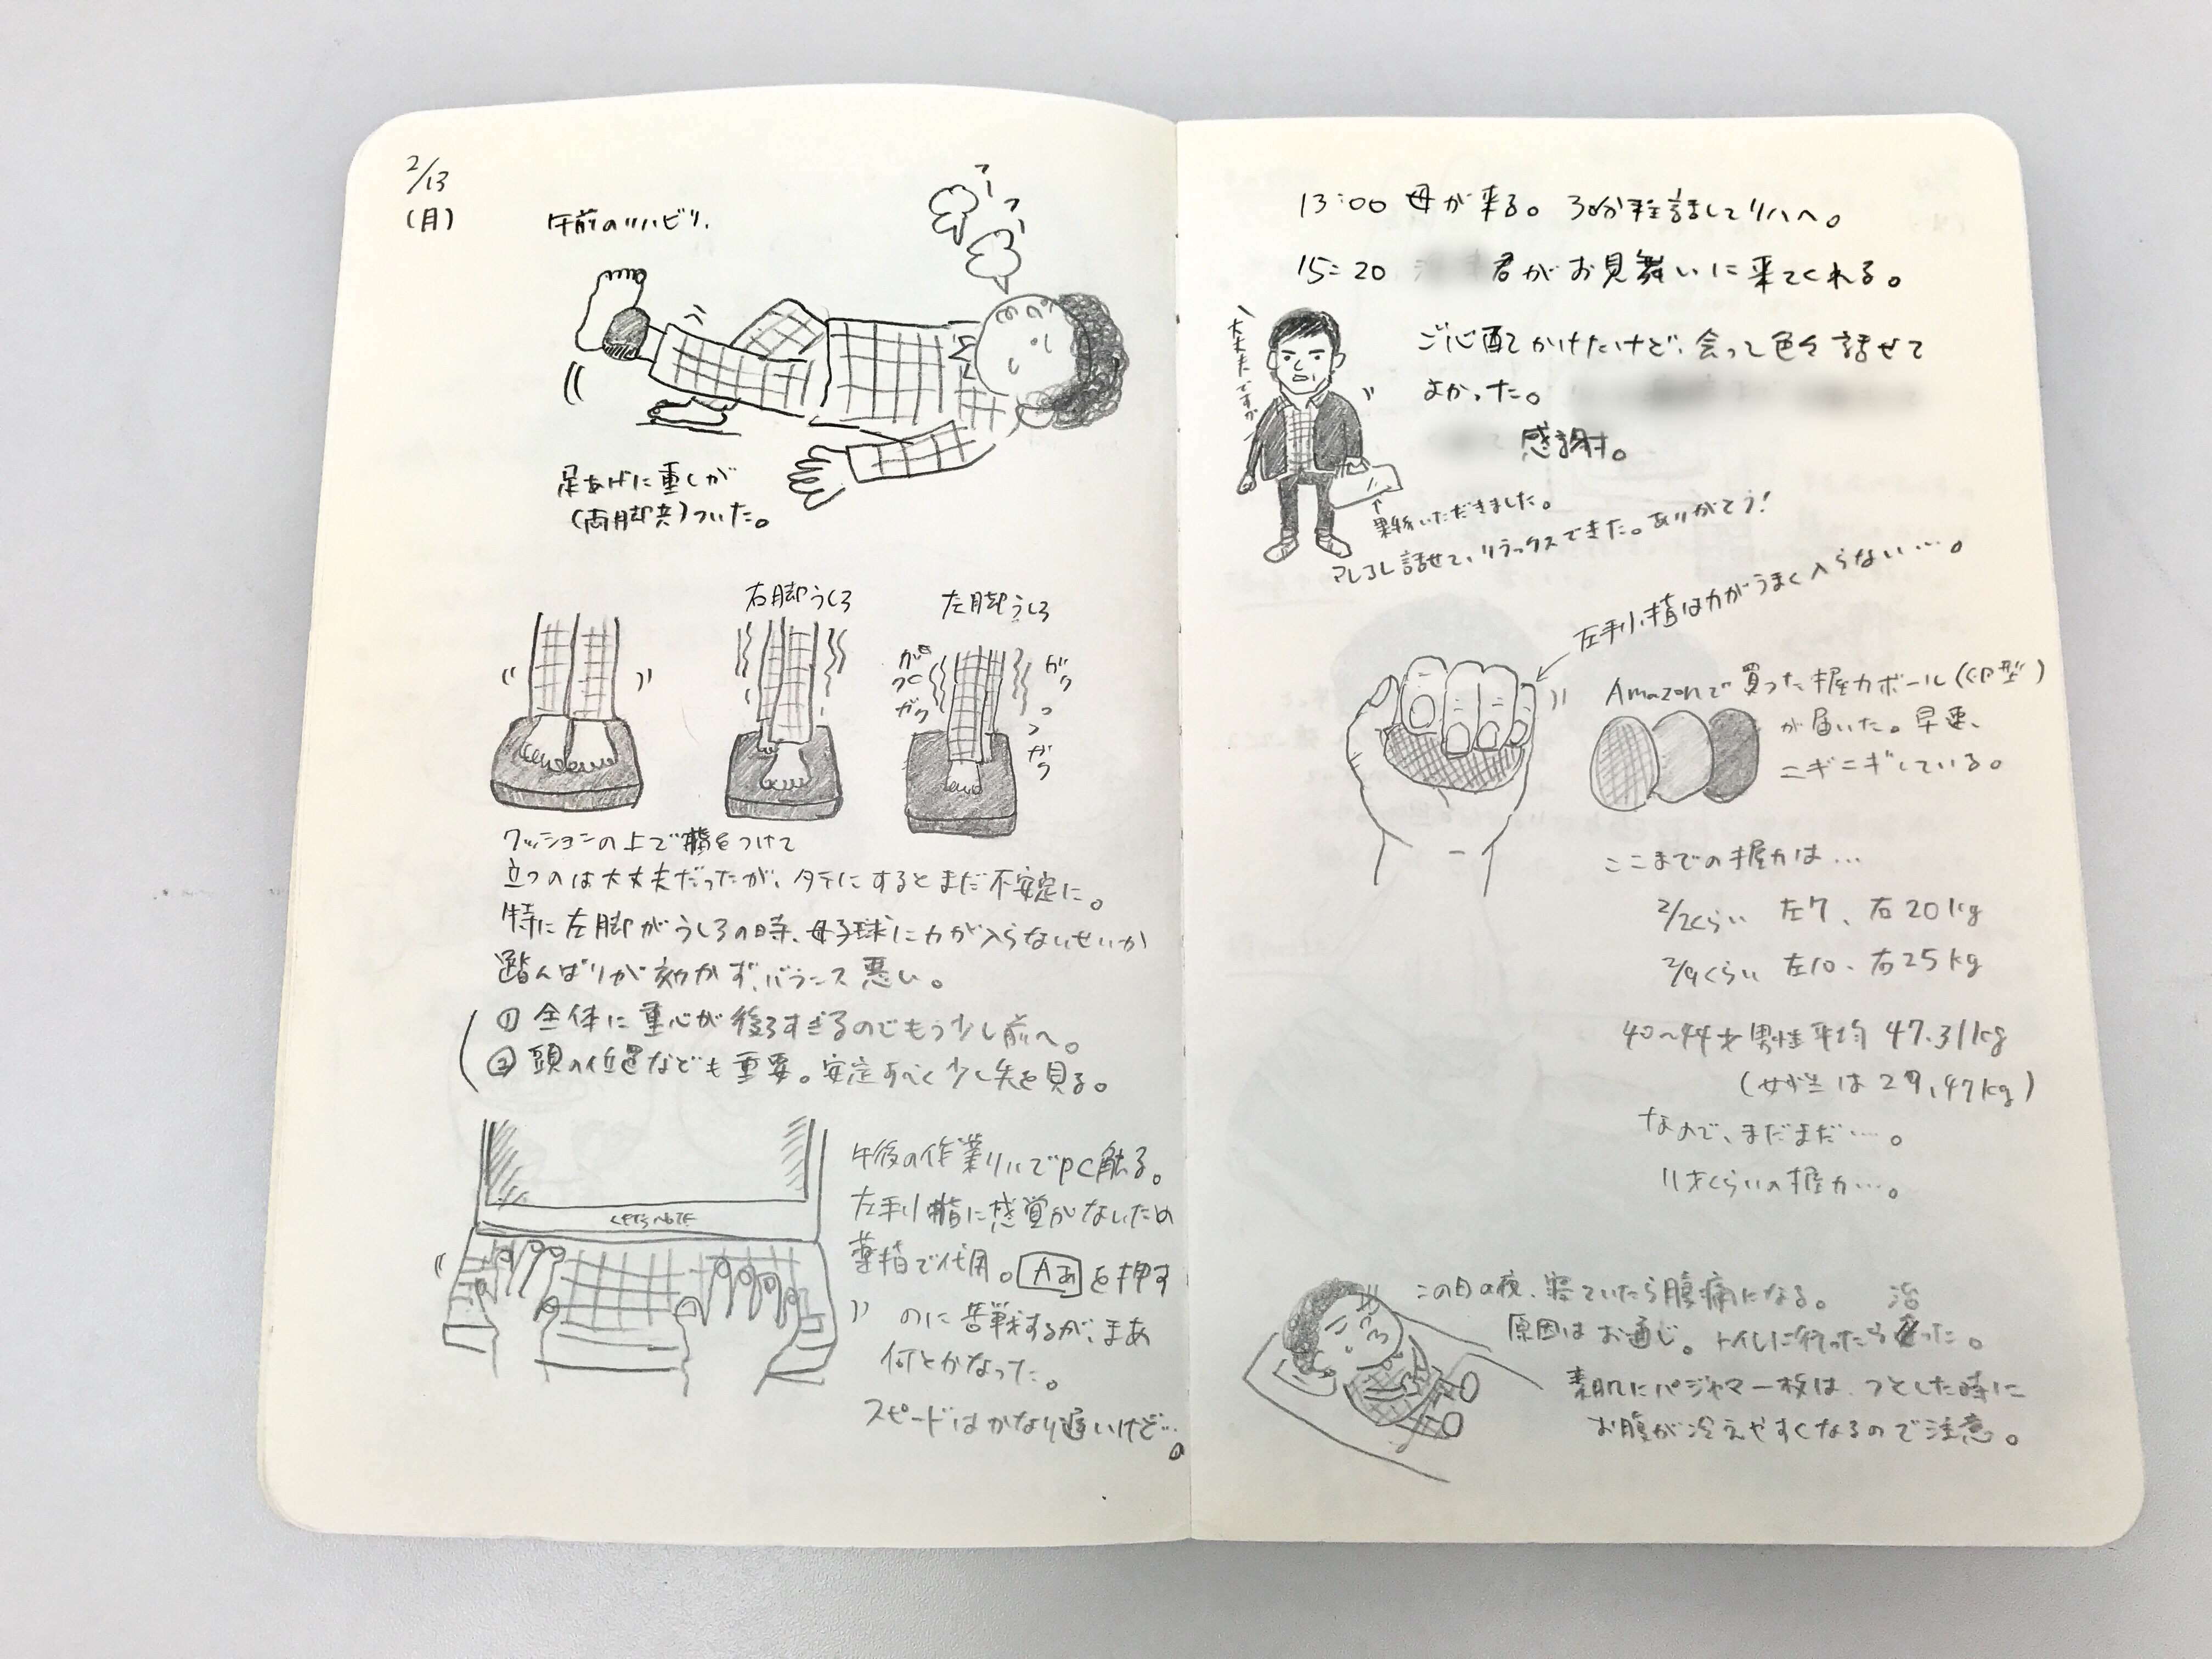 2/13
(月)
午前のリハビリ.
フーッフーッ
足あげに重しが
(両脚共)ついた。
右脚うしろ
左脚うしろ
ガク
ガク
ガク
ガク
クッションの上で脚をつけて
立つのは大丈夫だったが、タテにするとまだ不安定に。
特に左脚がうしろの時、母子球に力が入らないせいか
踏んばりが効かず、バランス悪い。
① 全体に重心が後ろすぎるのでもう少し前へ。
② 頭の位置なども重要。安定すべく少し先を見る。
Let's note
午後の作業リハでPC触る。
左手小指に感覚がないため
薬指で代用。Aあを押す
のに苦戦するが、まあ
何とかなった。
スピードはかなり遅いけど…。
13:00 母が来る。30分程話してリハへ。
15:20 君がお見舞いに来てくれる。
大丈夫ですか
ご心配かけたけど、会って色々話せて
よかった。
感謝。
↑
果物いただきました。
アレコレ話せて、リラックスできた。ありがとう!
左手小指は力がうまく入らない…。
Amazonで買った握力ボール(卵型)
が届いた。早速、
ニギニギしている。
ここまでの握力は…
2/2くらい 左7、右20kg
2/9くらい 左10、右25kg
40〜44才男性平均 47.31kg
(女性は29.47kg)
なので、まだまだ…。
11才くらいの握力…。
この日の夜、寝ていたら腹痛になる。
原因はお通じ。トイレに行ったら治った。
素肌にパジャマ一枚は、ふとした時に
お腹が冷えやすくなるので注意。